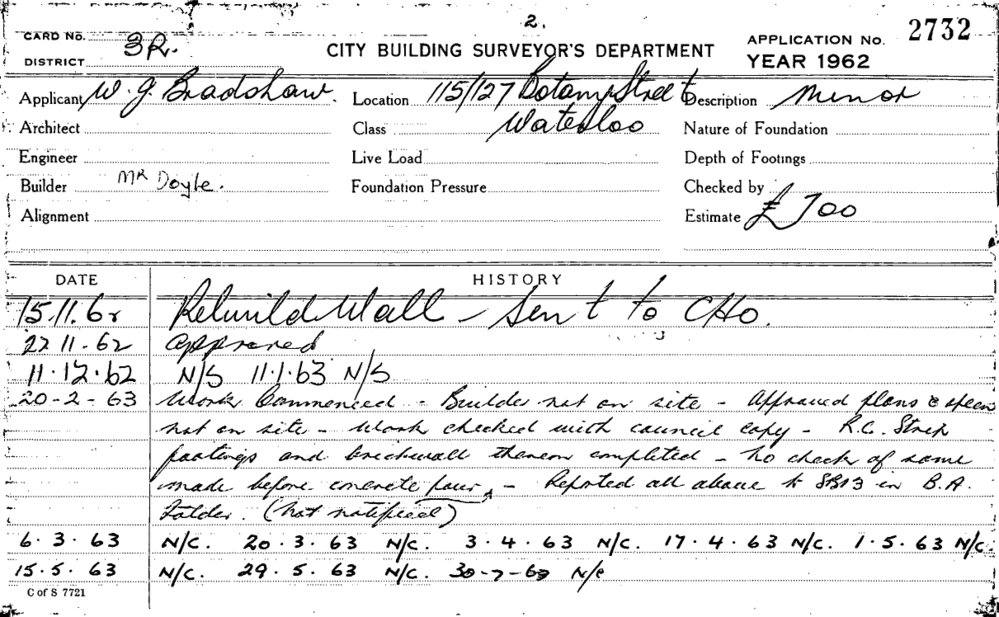 2.
CARD No. 3R. CITY BUILDING SURVEYOR'S DEPARTMENT APPLICATION No. 2732
DISTRICT YEAR 1962
Applicant W. J Bradshaw. Location 115/127 Botany Street Description Minor
Architect Class Waterloo Nature of Foundation
Engineer Live Load Depth of Footings
Builder MR Doyle. Foundation Pressure Checked by
Alignment Estimate £700
DATE HISTORY
15.11.62 Rebuild Wall - Sent to CHO.
22 11-62 approved
11.12.62 N/S 11.1.63 N/S
20-2-63 Work Commenced - Builder not on site - Approved plans & specn
not on site - Work checked with council copy - R.C. Strip
footings and brickwall thereon completed - No check of same
made before concrete pour - Reported all above to in B.A.
Folder. (Not notified)
6.3.63 N/C. 20.3.63 N/C. 3.4.63 N/C. 17.4.63 N/C. 1.5.63 N/C.
15.5.63 N/C. 29.5.63 N/C. 30-7-63 N/C
C of S 7721